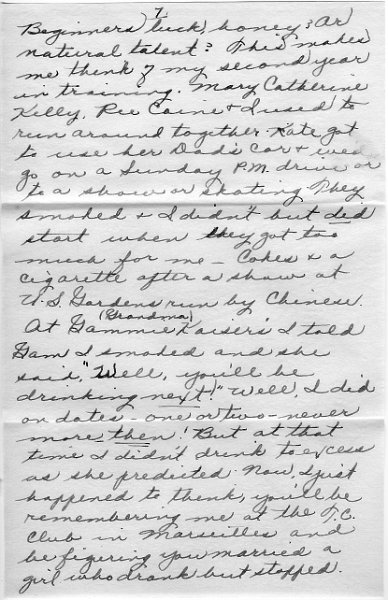 7.
Beginners luck, honey? Or
natural talent? This makes
me think of my second year
in training. Mary Catherine
Kelly, Ree Caine & I used to
run around together. Kate got
to use her Dad's car & we'd
go on a Sunday P.M. drive or
to a show or skating. They
smoked & I didn't but did
start when they got too
much for me - Cokes & a
cigarette after a show at
U.S. Gardens run by Chinese.
(Grandma)
At Gammie Kaiser's I told
Gam I smoked and she
said, "Well, you'll be
drinking next!" Well, I did
on dates - one or two - never
more, then! But at that
time I didn't drink to excess
as she predicted. Now, I just
happened to think, you'll be
remembering me at the T.C.
Club in Marseilles and
be figering you married a
girl who drank but stopped.